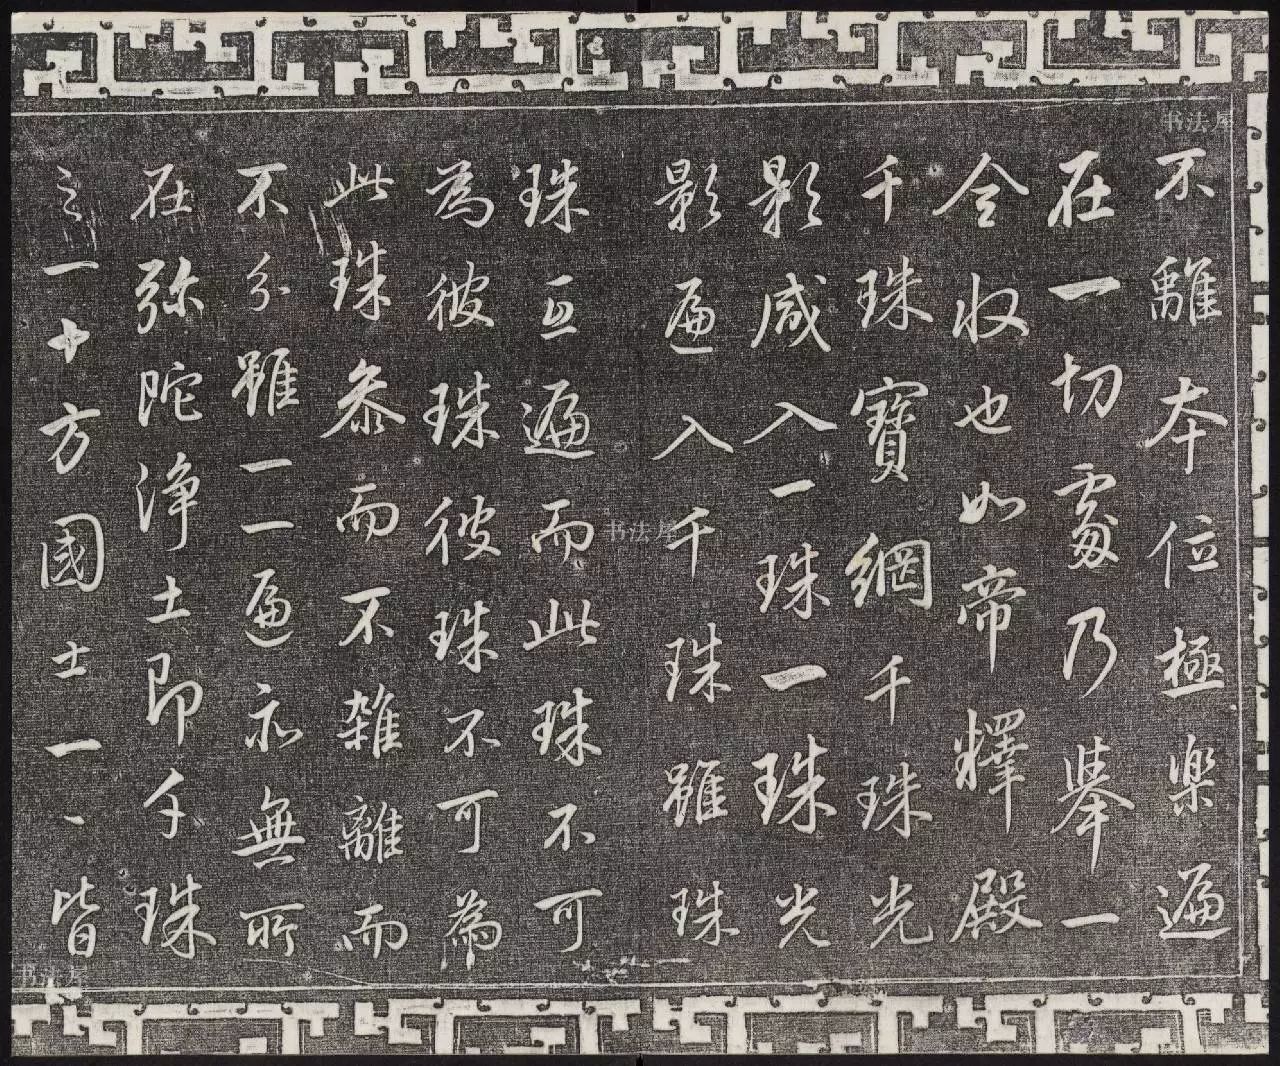 不離本位極樂遍
在一切處乃舉一
全收也如帝釋殿
千珠寶網千珠光
影咸入一珠一珠光
影遍入千珠雖珠
珠互遍而此珠不可
為彼珠彼珠不可為
此珠參而不雜離而
不分雖一一遍亦無所
在弥陀淨土即千珠
之一十方國土一一皆
书法屋
书法屋
书法屋